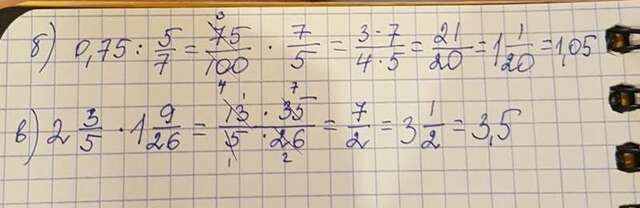 б) 0,75 : 5/7 = 75/100 · 7/5 = 3·7/4·5 = 21/20 = 1 1/20 = 1,05
в) 2 3/5 · 1 9/26 = 13·35/5·26 = 7/2 = 3 1/2 = 3,5